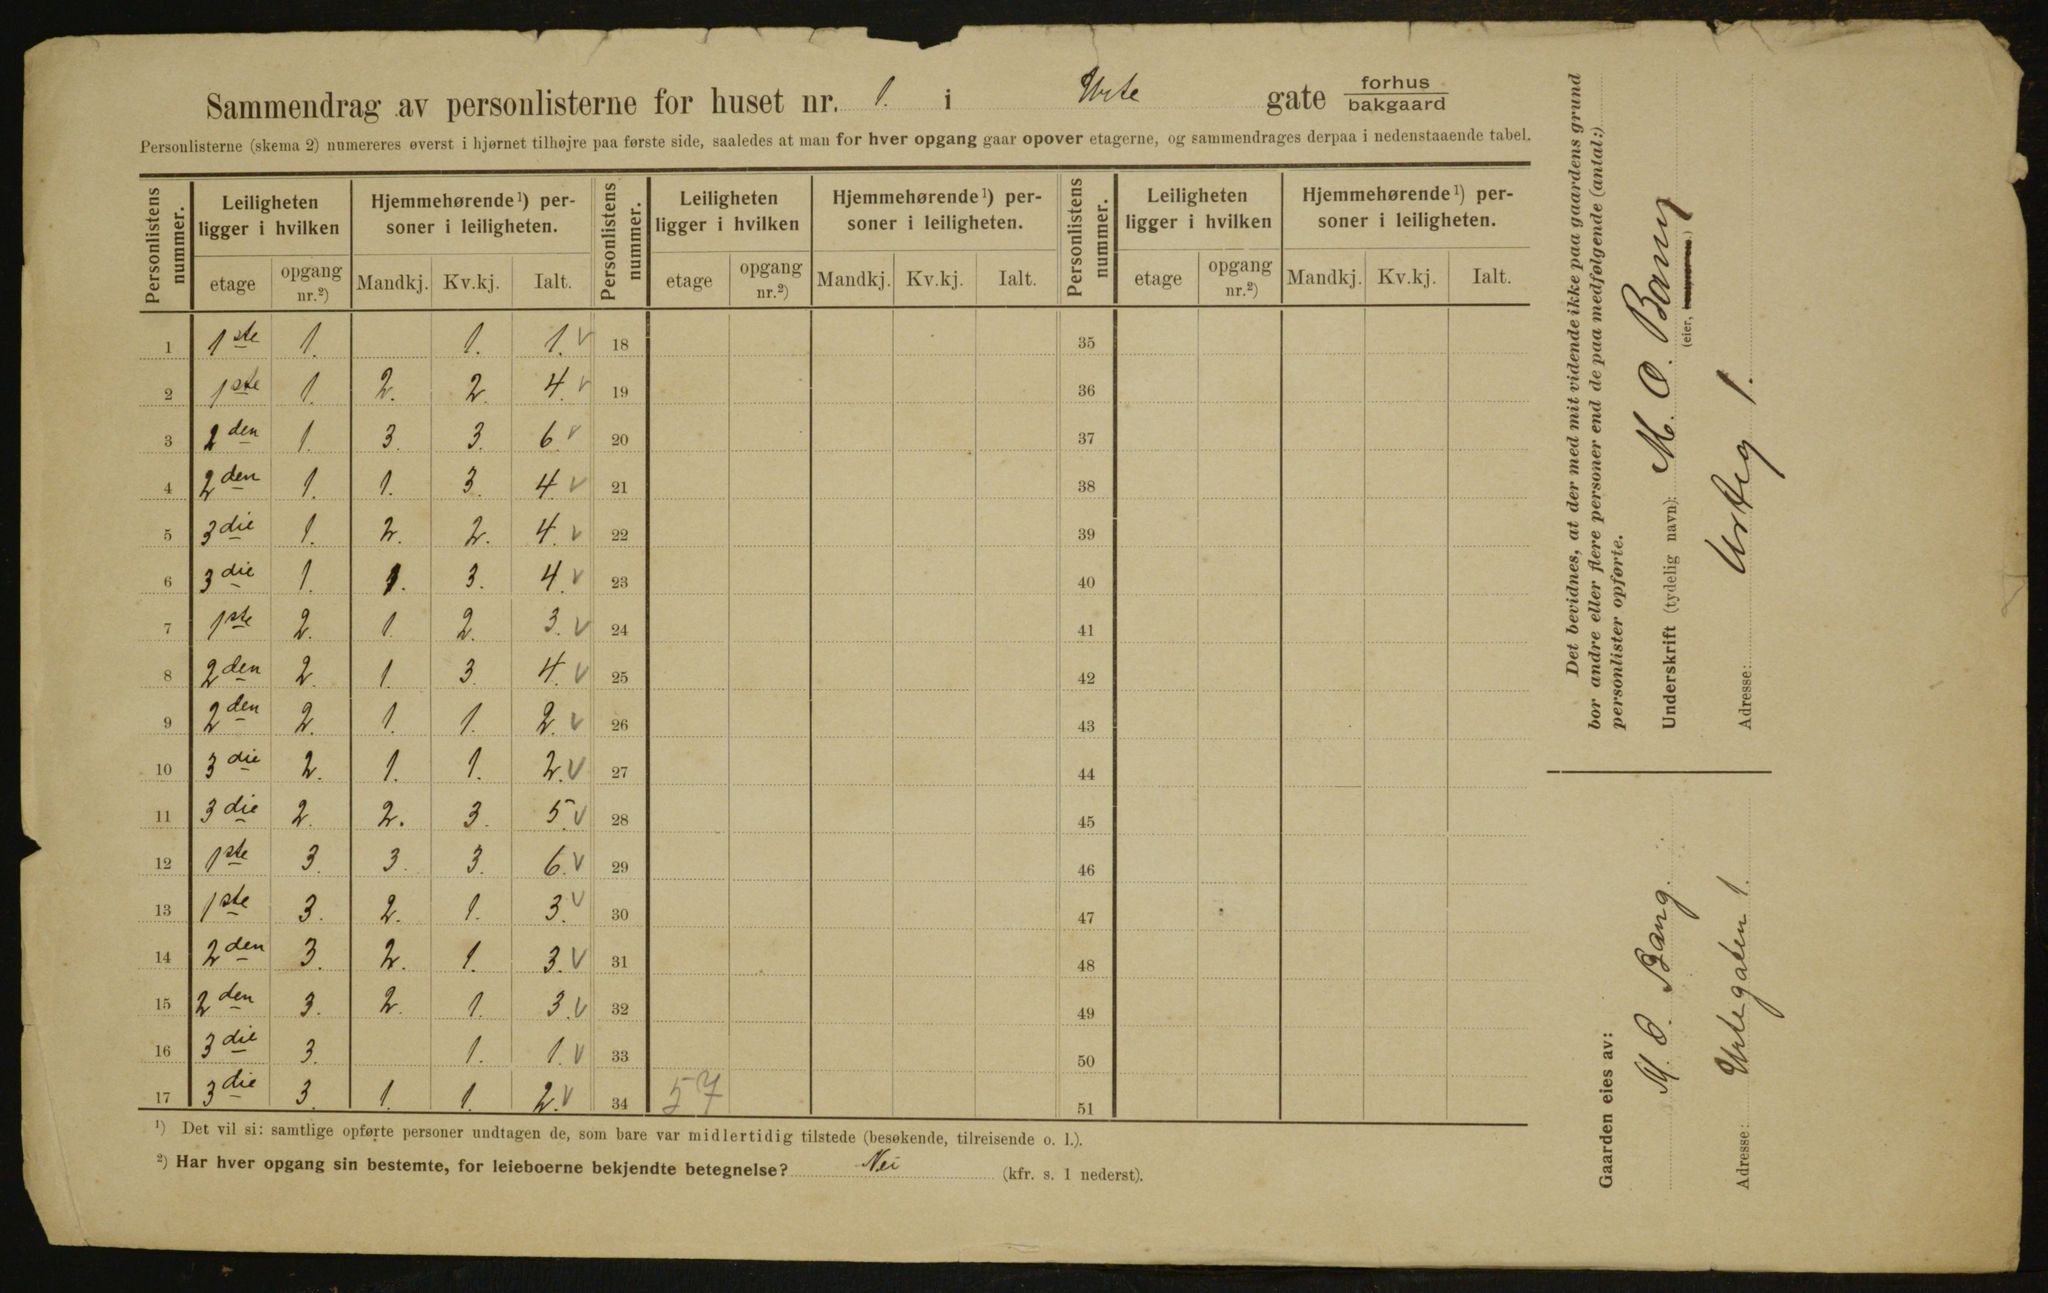 Sammendrag av personlisterne for huset nr. 1. i Urte gate forhus bakgaard
Personlisterne (skema 2) numereres øverst i hjørnet tilhøjre paa første side, saaledes at man for hver opgang gaar opover etagerne, og sammendrages derpaa i nedenstaaende tabel.
Personlistens nummer. Leiligheten ligger i hvilken Hjemmehørende¹) personer i leiligheten. Personlistens nummer. Leiligheten ligger i hvilken Hjemmehørende¹) personer i leiligheten. Personlistens nummer. Leiligheten ligger i hvilken Hjemmehørende¹) personer i leiligheten.
etage opgang nr.²) Mandkj. Kv.kj. Ialt. etage opgang nr.²) Mandkj. Kv.kj. Ialt. etage opgang nr.²) Mandkj. Kv.kj. Ialt.
1 1ste 1. 1. 1. V 18 35
2 1ste 1. 2. 2. 4. V 19 36
3 2den 1. 3. 3. 6. V 20 37
4 2den 1. 1. 3. 4. V 21 38
5 3die 1. 2. 2. 4. V 22 39
6 3die 1. 1. 3. 4. V 23 40
7 1ste 2. 1. 2. 3. V 24 41
8 2den 2. 1. 3. 4. V 25 42
9 2den 2. 1. 1. 2. V 26 43
10 3die 2. 1. 1. 2. V 27 44
11 3die 2. 2. 3. 5. V 28 45
12 1ste 3. 3. 3. 6. V 29 46
13 1ste 3. 2. 1. 3. V 30 47
14 2den 3. 2. 1. 3. V 31 48
15 2den 3. 2. 1. 3. V 32 49
16 3die 3. 1. 1. V 33 50
17 3die 3. 1. 1. 2. V 34 57 51
¹) Det vil si: samtlige opførte personer undtagen de, som bare var midlertidig tilstede (besøkende, tilreisende o. l.).
²) Har hver opgang sin bestemte, for leieboerne bekjendte betegnelse? Nei (kfr. s. 1 nederst).
Det bevidnes, at der med mit vidende ikke paa gaardens grund
bor andre eller flere personer end de paa medfølgende (antal:)
personlister opførte.
Underskrift (tydelig navn): M. O. Bang
(eier,
Adresse: Urteg 1.
Gaarden eies av:
M. O. Bang.
Adresse: Urtegaten 1.